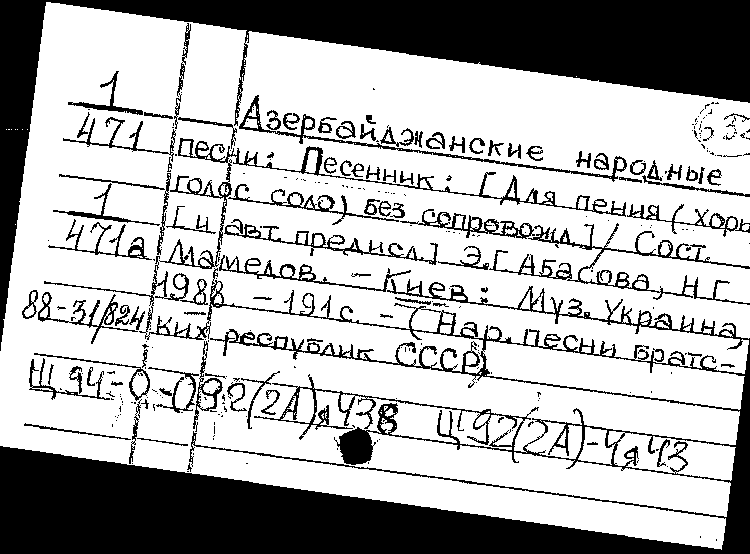 1
471
1
471а
88-31/824
Азербайджанские народные
песни: Песенник: [Для пения (хор и
голос соло) без сопровожд.] / Сост.
[и авт. предисл.] Э.Г. Абасова, Н.Г.
Мамедов. - Киев: Муз. Украина,
1988. - 191 с. - (Нар. песни братс-
ких республик СССР)
Щ94-0-092(2А)я438 Щ92(2А)-4я43